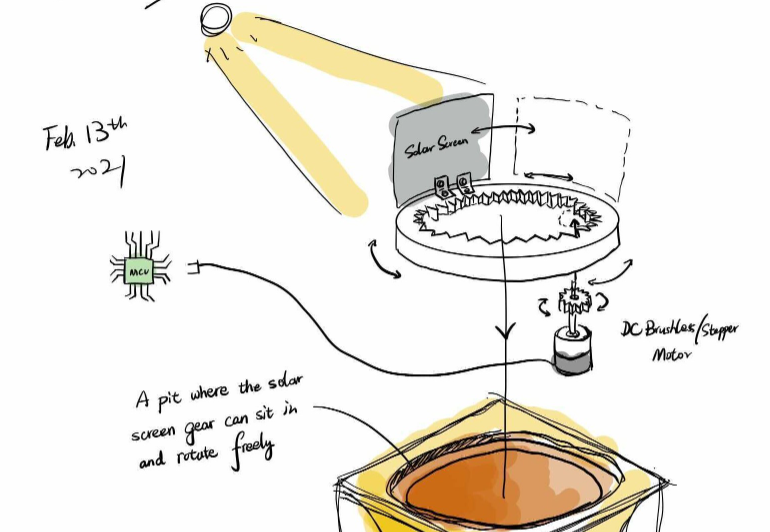 Feb. 13th
2021
Solar Screen
MCU
DC Brushless/Stepper
Motor
A pit where the solar
screen gear can sit in
and rotate freely